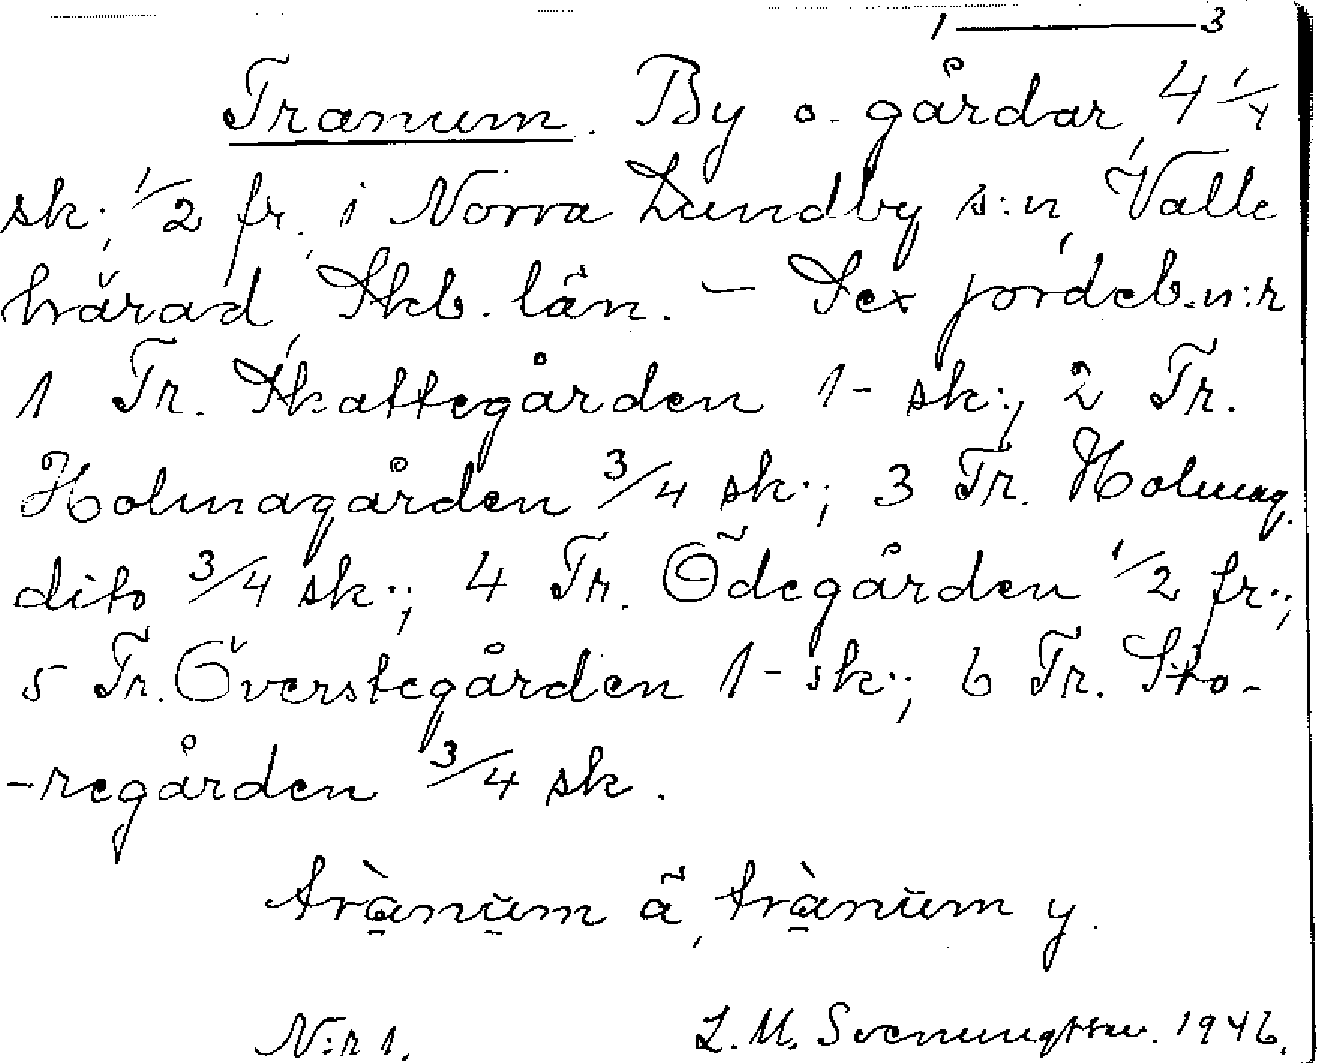 1 — 3
Tranum. By o. gårdar, 4 1/4
sk:, 1/2 fr. i Norra Lundby s:n, Valle
härad, Skb. län. — Sex jordeb.n:r
1 Tr. Skattegården 1- sk:, 2 Tr.
Holmagården 3/4 sk:; 3 Tr. Holmag.
dito 3/4 sk:; 4 Tr. Ödegården 1/2 fr:;
5 Tr. Överstegården 1- sk:; 6 Tr. Sto-
-regården 3/4 sk.
trànum ä, trànum y.
N:r 1. L. M. Svenungsson. 1946.